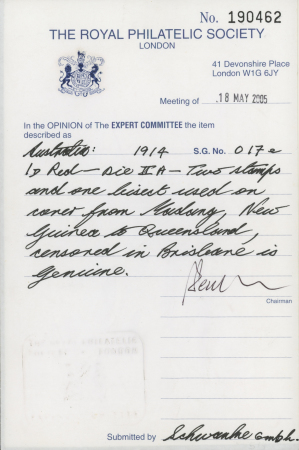 No. 190462
THE ROYAL PHILATELIC SOCIETY
LONDON
41 Devonshire Place
London W1G 6JY
Meeting of 18 MAY 2005
In the OPINION of The EXPERT COMMITTEE the item
described as
Australia: 1914 S.G. No 017e
1D Red - Die IIA - Two stamps
and one bisect used on
cover from Madang, New
Guinea to Queensland,
censored in Brisbane is
Genuine.
Chairman
Submitted by Schwanke GmbH.